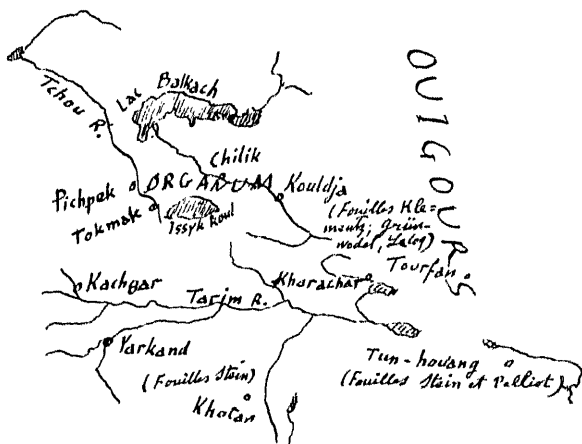 OUIGOUR
Lac Balkach
Tchou R.
Chilik
Pichpek
ORGANUM
Kouldja
Tokmak
Issyk Koul
(Fouilles Kle-
mentz, Grün-
wedel, Lecoq)
Kachgar
Tarim R.
Kharachar
Tourfan
Yarkand
(Fouilles Stein)
Khotan
Tun-houang
(Fouilles Stein et Pelliot)